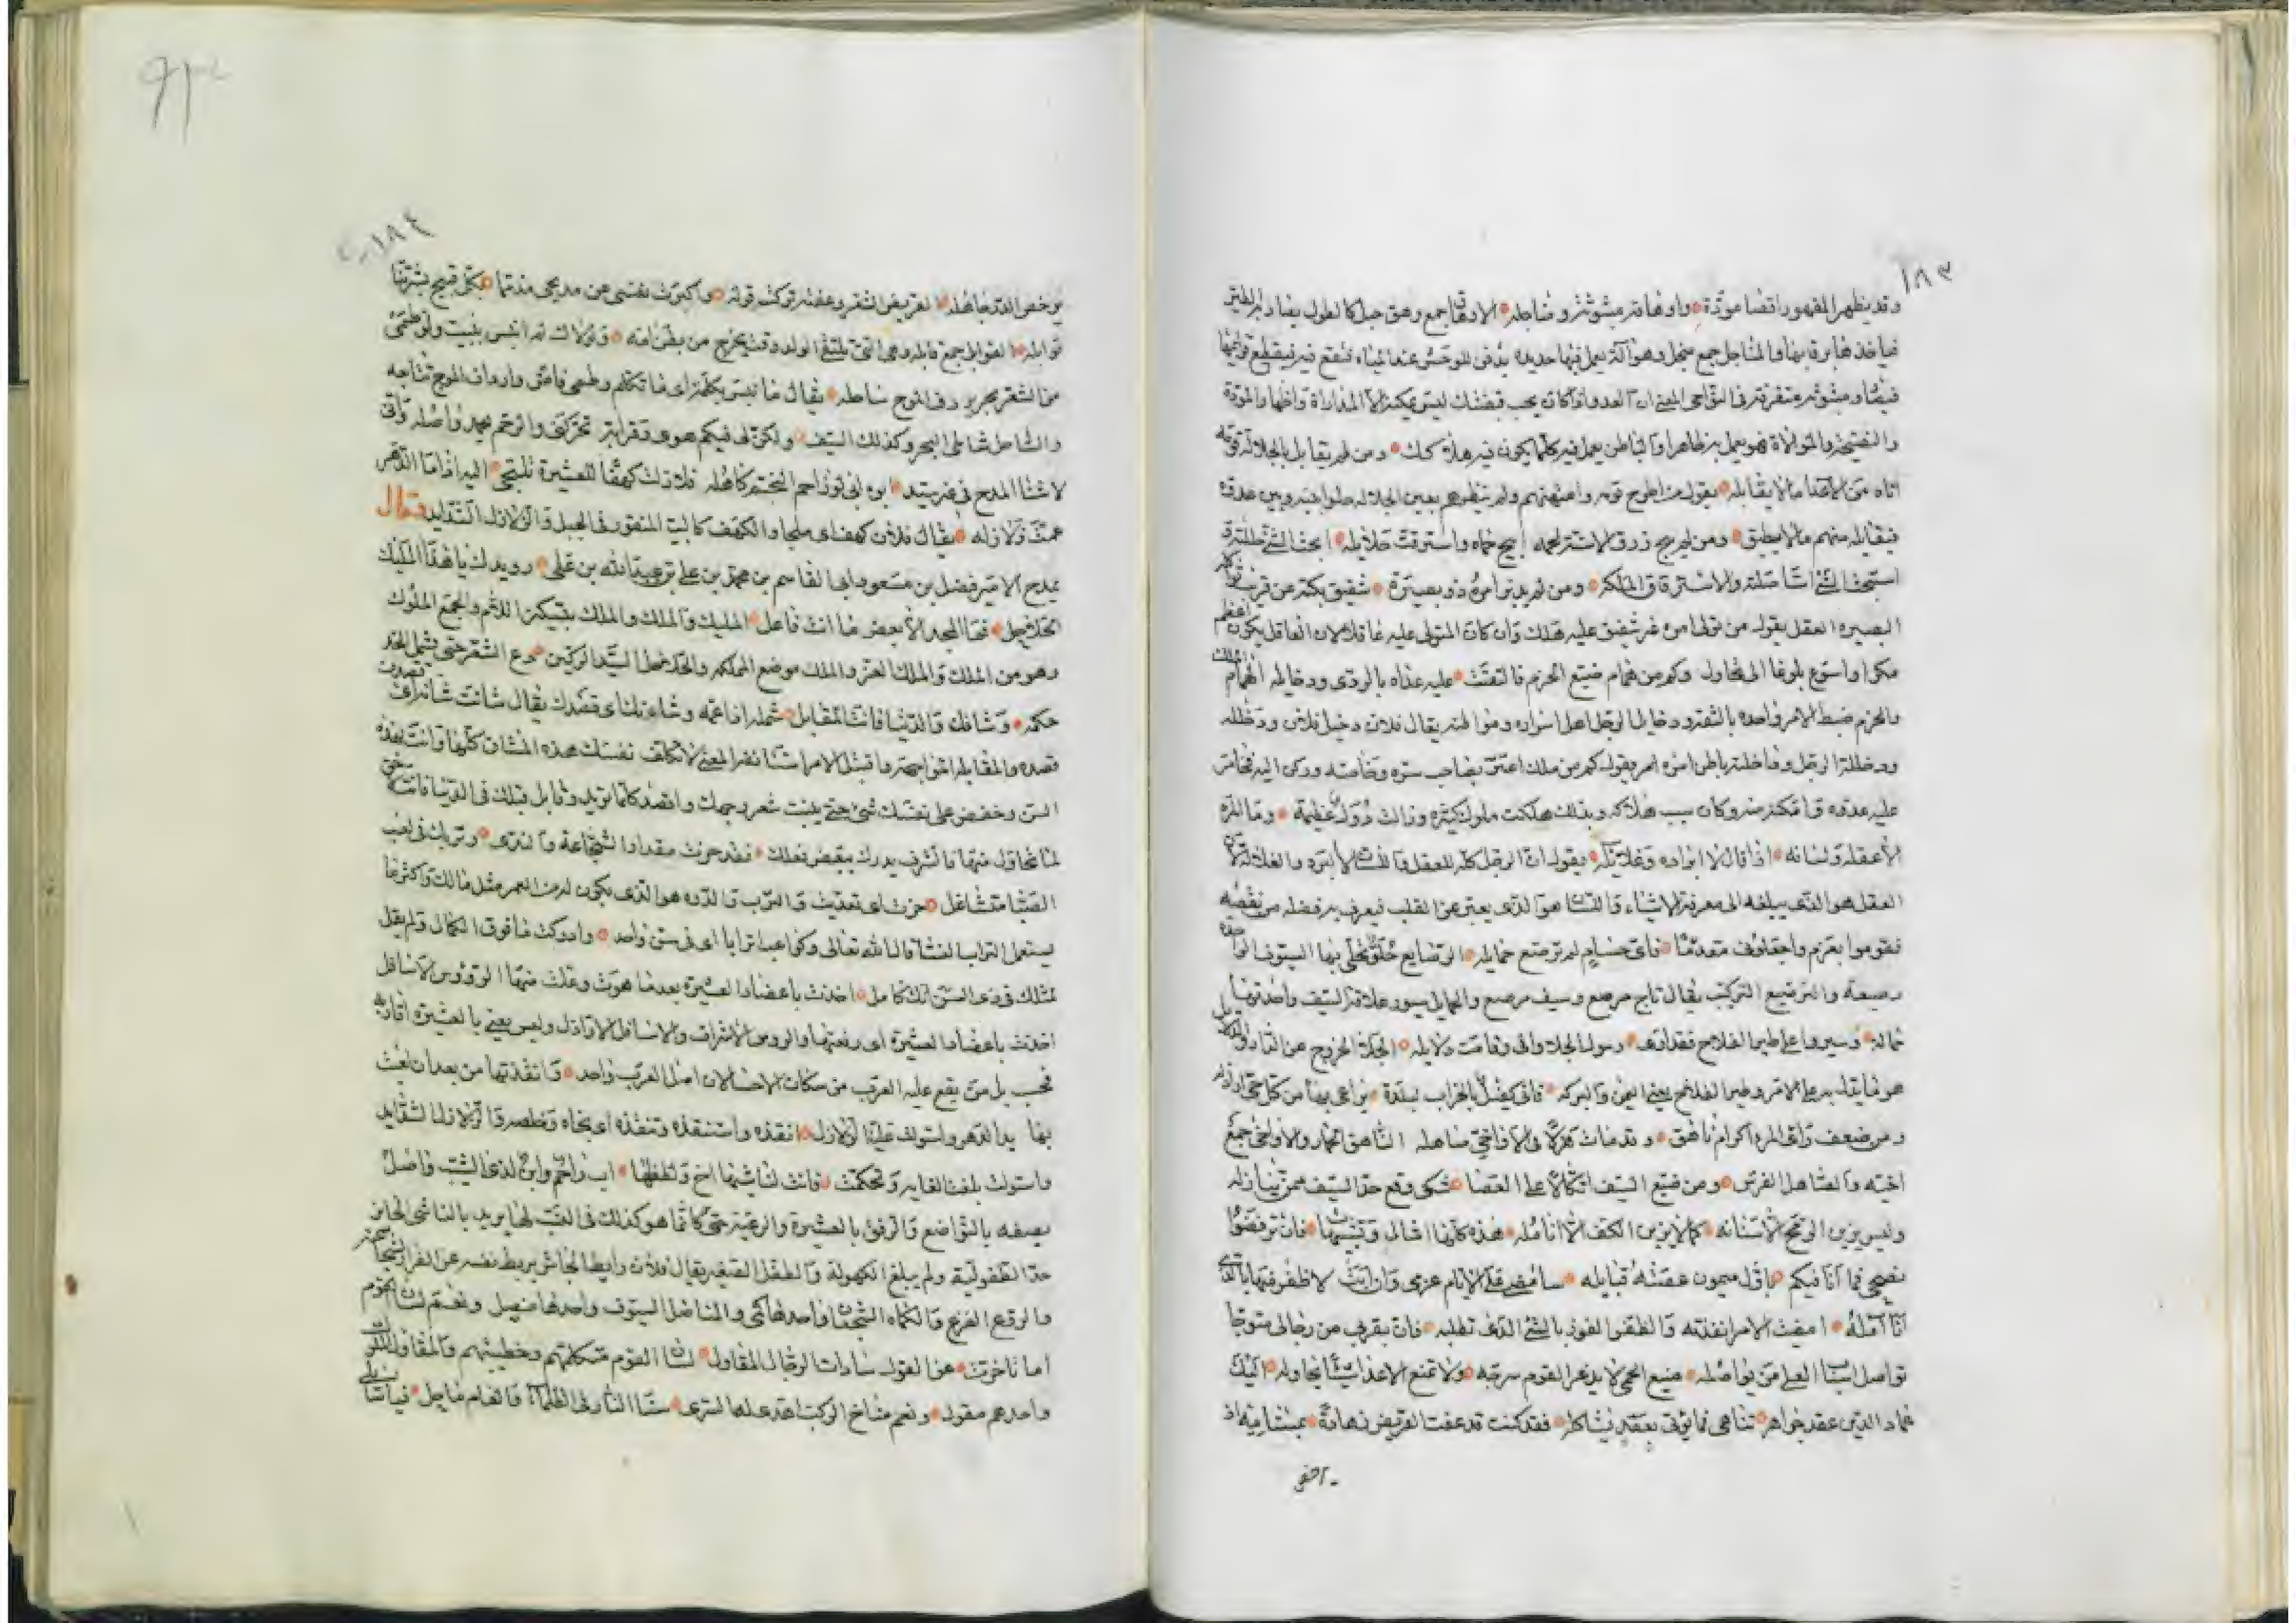 ١٨٣
وقد يظهر المقهور اقضا مودة واوهاقه مبثوثة ومناجله الاوهاق جمع وهق حبل كالطول يصاد به الطير
فياخذها برقابها والمناجل جمع منجل وهو آلة يعمل فيها حديده يدفن للوحش عند المياه فتقع فيه فيقطع قوايمها
فيها ومبثوثه متفرقة في النواحي المعنى ان العدو اذا كان يحب قبضتك ليس يمكنه الا المداراة واظهار المودة
والنصيحة والموالاة فهو يعمل به ظاهرا والباطن يعمل فيه كلما يكون فيه هلاكك ومن لم يقابل بالجلالة قومه
اتاه من الاعدا ما لا يقابله يقول من اطرح قومه واهانهم ولم ينظرهم بعين الجلاله حلوا بينه وبين عدوه
فيقابله منهم ما لا يطيق ومن لم يرج زرق الاسنة لحمه ابيح حماه واسترقت حلايله ابحت الشئ حللته و
استبحت الشئ استاصلته والاسترقاق الملكة ومن لم يدبر امره ذو بصيرة شفيق بكته عن قريب ثواكله
البصيره العقل يقول من تولى امره غير شفيق عليه هلك وان كان المتولى عليه عاقلا لان العاقل يكون اعظم
مكرا واسرع بلوغا الى محاول وكم من همام ضيع الحزم فالتقت عليه عداه بالردى ودخايله الهمام الملك
والحزم ضبط الامر واخذه بالثقة ودخايل الرجل اهل اسراره ومواطنه يقال فلان دخيل فلان ودخلله
ودخللة الرجل وداخلته باطن امره يقول كم من ملك اغتر بصاحب سره وخاصته وركن اليه فخامر
عليه عدوه وامكنه منه وكان سبب هلاكه وبذلك هلكت ملوك كثيرة وزالت دول عظيمة وما المرء
الا عقله ولسانه اذا قال لا ابراده وغلايله يقول ان الرجل كله للعقل واللسان لا ابرده والغلايل لان
العقل هو الذي يبلغه الى معرفة الاشياء واللسان هو الذي يعبر عن القلب فيعرف به فضله من نقصه
فقوموا بعزم واجعلوني مقدما فاي حسام لم ترصع حمايله الرصايع حلق تحلى بها السيوف الواحدة
رصيعة والترصيع التركيب يقال تاج مرصع وسيف مرصع والحمايل سيور علاقة السيف واحدتها
حماله وسيروا على طير الفلاح فقد ارى رسول الجلا وافى وقامت دلايله الجلاء الخروج عن الدار والدلايل
هو ما يدل به على الامر وطير الفلاح يعنى اليمن والبركه فاني كفيل بالخراب لبلدة يراعى بها من كل حى اراذله
ومن ضعف راى المرء اكرام ناهق وقد مات هزلا في الاواخي صاهله الناهق الحمار والاواخي جمع
اخيه والصاهل الفرس ومن ضيع السيف اتكالا على العصا شكى وقع حد السيف ممن ينازله
وليس يزين الرمح الا سنانه كما لا يزين الكف الا انامله هذه كلها امثال وتنبيهات فان ترفضوا
نصحي فما انا فيكم باول ميمون عصته قبايله سامضي على الايام عزمى وان ابت لاظفر فيها بالذي
انا آمله امضيت الامر انفذته والظفر الفوز بالشئ الذي تطلبه فان يقرب من رحالى متوجا
تواصل اسباب العلى من يواصله منيع الحمى لا يذعر القوم سربه ولا تمنع الاعداء شيئا يحاوله اليك
عماد الدين عقد جواهر تناهى فما يؤتى بعقد يشاكله فقد كنت قد عفت القريض زهادة بمنشاديه اذ
١٨٤
يرخص القدر جاهله القريض الشعر وعفته تركته قوله واكبرت نفسى عن مديحى مذمما بكل قبيح بشرتها
قوابله القوابل جمع قابله وهى التي تلتقي الولد وقت يخرج من بطن امه ولولاك لم انبس ببيت ولو طمى
من الشعر بحر يردف الموج ساحله يقال ما نبس بكلمة اى ما تكلم وطمى فاض وارداف الموج تتابعه
والساحل شاطى البحر وكذلك السيف ولكن لى فيكم هوى وقرابة تحركنى والرحم يحمد واصله وانى
لاشنا المدح في غير سيد ابوه ابى لو زاحم النجم كاهله فلا زلت كهفا للعشيرة تلتجى اليه اذا ما الدهر
عمت زلازله يقال فلان كهف اى ملجا والكهف كالبيت المنقور في الجبل والزلازل الشدايد وقال
يمدح الامير فضل بن مسعود ابى القاسم بن محمد بن علي بن عبد الله بن على رويدك يا هذا المليك
الحلاحل فما المجد الا بعض ما انت فاعل المليك والملك والملك بتسكين اللام والجمع الملوك
وهو من الملك والملك العز والملك موضع المملكه والحلاحل السيد الركين دع الشعر حتى يشمل الخد
حكمه وشانك والدنيا فانت المقابل شمله اذا عمه وشانك اى قصدك يقال شانت شانه اى قصدت
قصده والمقابله المواجهه واقتبل الامر استانفه المعنى لا تكلف نفسك هذه المشاق كلها وانت بهذه
السن وخفض على نفسك شئ حتى ينبت شعر وجهك واقصد كلما تريد وقابل قبلك في الدنيا فانت
لما تحاول منها والشرف يدرك ببعض فعلك فقد حزت مقدار الشجاعة والندى وتربك في لعب
الصبا متشاغل حزت اى تعديت والترب واللده هو الذي يكون له من العمر مثل مالك واكثر ما
يستعمل التراب النسا قال الله تعالى وكواعب اترابا اى في سن واحد وادركت ما فوق الكمال ولم يقل
لمثلك في ذى السن انك كامل اخذت باعضاد العشيرة بعدما هوت وعلت منها الرؤوس الاسافل
اخذت باعضاد العشيرة اى رفعتها والروس الاشراف والاسافل الاراذل وليس يعنى بالعشيرة اقاربه
فحسب بل من يقع عليه العرب من سكان الاحسا لان اصل العرب واحد وانقذتها من بعد ان لعبت
بها يد الدهر واستولت عليها الزلازل انقذه واستنقذه وتنقذه اى نجاه وخلصه والزلازل الشدايد
واستولت بلغت الغايه وتحكمت فانت لناشيها اخ ولطفلها اب راحم وابن لذى الشيب واصل
يصفه بالتواضع والرفق بالعشيرة والرعية حتى كانما هو كذلك في الحب لها يريد بالناشى الجايز
حد الطفولية ولم يبلغ الكهولة والطفل الصغير يقال فلان رابط الجاش يربط نفسه عن الفرار لشجاعته
والروع الفزع والكماه الشجعان واحدها كمى والمناصل السيوف واحدها منصل ونعم لسان القوم
اما تاخرت عن القول سادات الرجال المقاول لسان القوم متكلمهم وخطيبهم والمقاول الملوك
واحدهم مقول ونعم مناخ الركب اهدى لها السرى سنا النار في الظلماء والعام ماحل